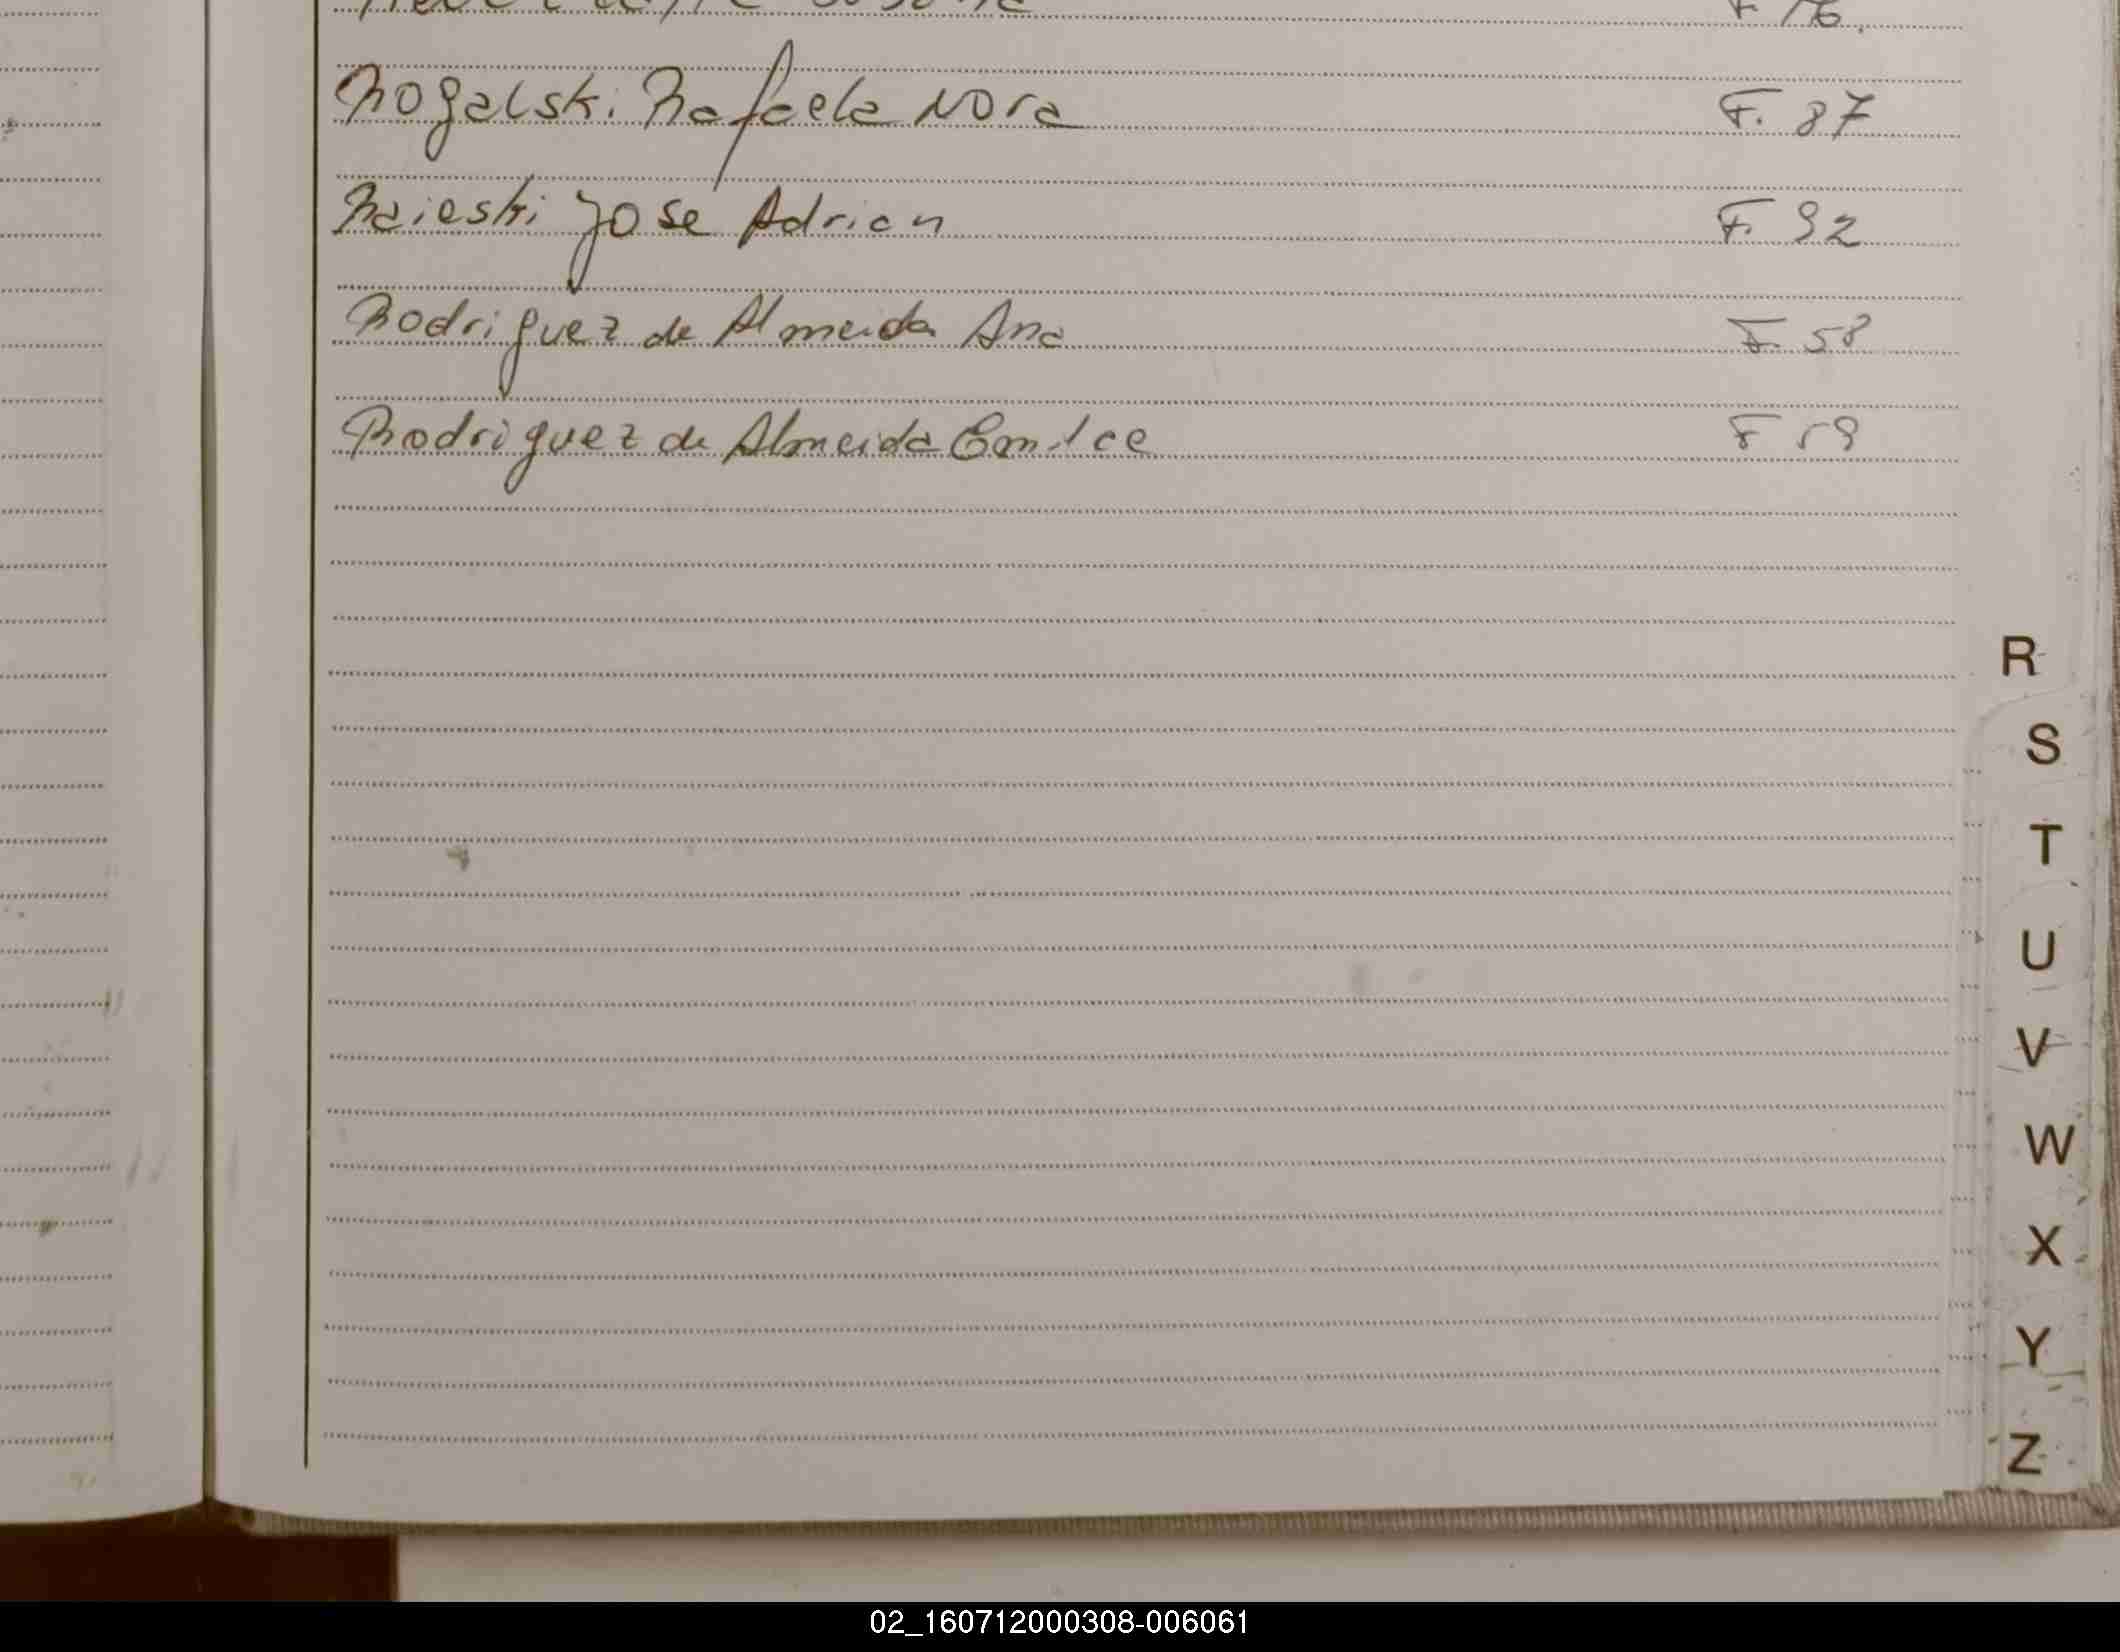 F 76.
Rogalski Rafaela Nora F. 87
Raieski Jose Adrian F. 92
Rodriguez de Almeida Ana F. 58
Rodriguez de Almeida Emilce F 59
R
S
T
U
V
W
X
Y
Z
02_160712000308-006061